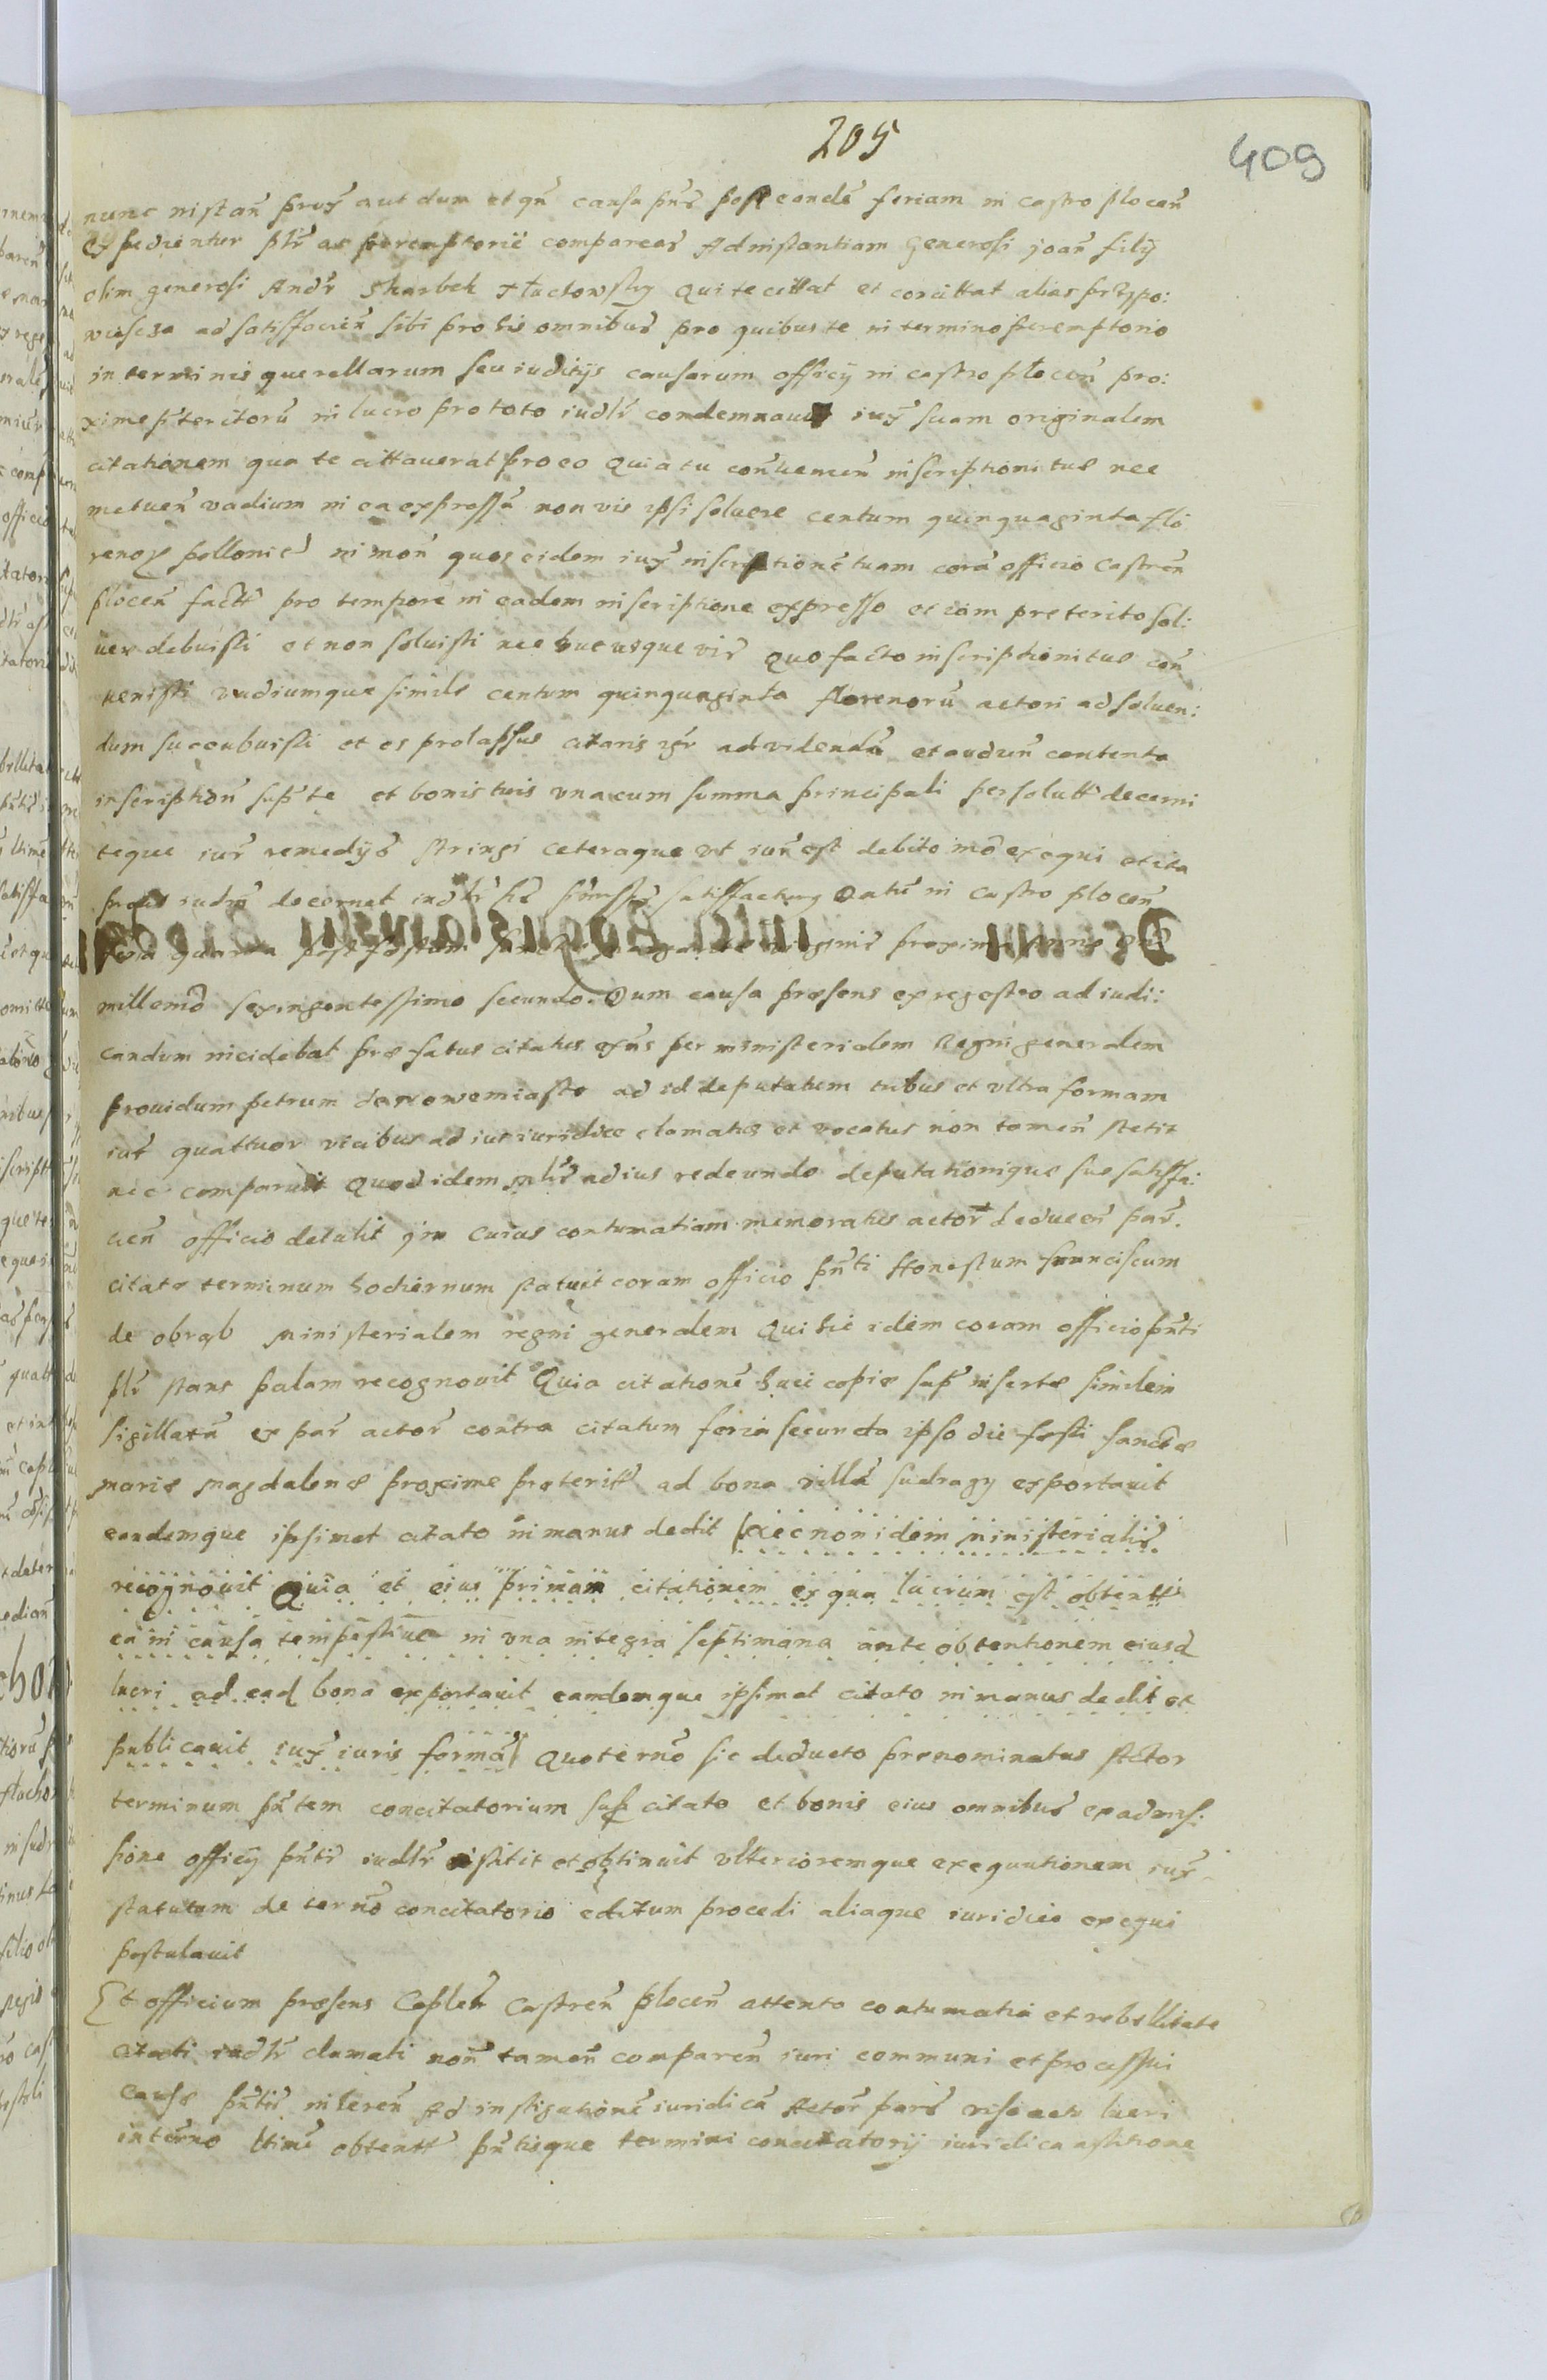 205
409
nunc instan̄ prox aut dum et qn̄ causa pn̄s post eand̄ feriam in castro plocen̄
expedientur plr̄ ac peremptorie compareas Ad instantiam Generosi Joan̄ filij
olim generosi Andr̄ Skarbek Ktuctowsky Qui te cittat et concittat alias przypo:
wiescza ad satisfacien̄ sibi pro his omnibus pro quibus te in termino peremptorio
in terminis querellarum seu iuditijs causarum officij in castro plocen̄ pro:
xime pr̄teritoru in lucro pro toto iudlr̄ condemnauit iux suam originalem
citationem qua te cittauerat pro eo Quia tu con̄uenien̄ inscriptioni tue nec
metuen̄ vadium in ea expressu non vis ipsi soluere centum quinquaginta flo
renox pollonic̄ in mon̄ quos eidem iux inscriptione tuam cora officio Castren̄
plocen̄ factt pro tempore in eadem inscriptione expresso et iam preterito sol:
uere debuisti et non soluisti nec hucusque vis Quo facto inscriptioni tue con̄
uenisti vadiumque simile centum quinquaginta florenoru actori ad soluen:
dum succubuisti et es prolapsus citaris igr̄ ad videndu et audien̄ contenta
inscription̄ sup te et bonis tuis vna cum summa principali persolutt decerni
teque iur̄ remedijs stringi ceteraque vt iur̄ est debito mō exequi et ita
prout iudm̄ decernet iudlr̄ satisfactury Datu in Castro plocen̄
feria quarta post festum sancte margarete virginis proximo Anno Dni
millemo sexingentessimo secundo. Dum causa praesens ex regestro ad iudi:
candum incidebat prae fatus citatus exn̄s per ministerialem Regni generalem
prouidum petrum de nowemiasto ad id deputatum tribus et vltra formam
iur̄ quattuor vicibus ad ius iuridice clamatus et vocatus non tamen̄ stetit
nec comparuit Quod idem mlr̄s ad ius redeundo deputationique sue satisfa:
cien̄ officio detulit In cuius contumatiam memoratus actor deducen̄ par̄.
citate terminum hodiernum statuit coram officio pn̄ti Honestum franciscum
de obrąb Ministerialem regni generalem Qui hic idem coram officio pn̄ti
plr̄ stans palam recognouit Quia citatione huic copie sup inserte similem
sigillata ex par̄ actor̄ contra citatum feria secunda ipso die festi sancte
marie magdalene proxime preteritt ad bona villa sudragy exportauit
eandemque ipsimet citato in manus dedit (necnon idem ministerialis
recognouit Quia et eius primam citationem ex qua lucrum est obtentt
ea in causa tempestiue in vna integra septimana ante obtentionem eiusd
lucri ad ead bona exportauit eandemque ipsimet citato in manus dedit et
publicauit iux iuris forma) Quo termo sic deducto prenominatus Actor
terminum pn̄tem concitatorium sup citato et bonis eius omnibus ex admis:
sione officij pn̄tis iudlr̄ astitit et obtinuit vlterioremque exequutionem iux
statutum de termo concitatorio editum procedi aliaque iuridice exequi
postulauit
Et officium praesens Caplen̄ Castren̄ plocen̄ attento contumatia et rebellitate
citati iudlr̄ clamati non tamen̄ comparen̄ iuri communi et processui
cause pn̄tis inheren̄ Ad instigatione iuridica Actor̄ pars viso actu lucri
in termo ltime obtentt pn̄tisque termini concitatorij iuridica astitione